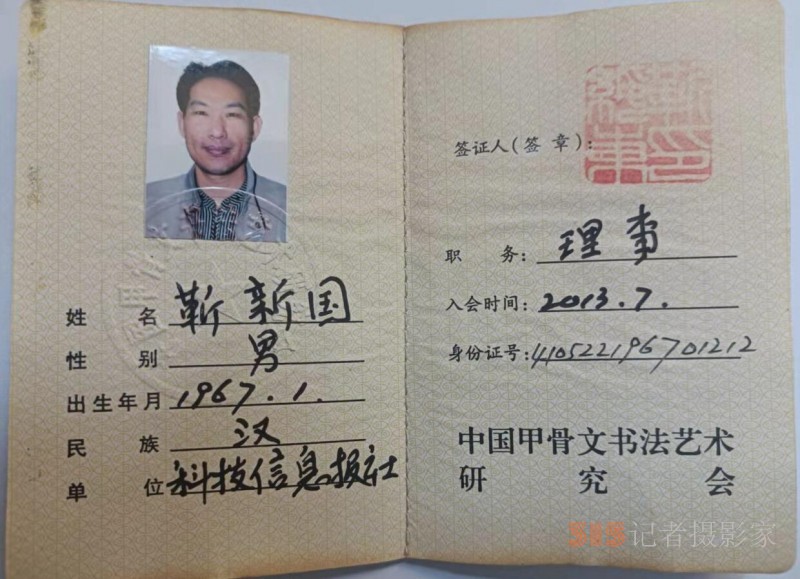 姓 名 靳新国
性 别 男
出生年月 1967.1.
民 族 汉
单 位 科技信息报社
签证人(签 章):
职 务: 理事
入会时间: 2013.7.
身份证号: 410522196701212
中国甲骨文书法艺术
研 究 会
515记者摄影家